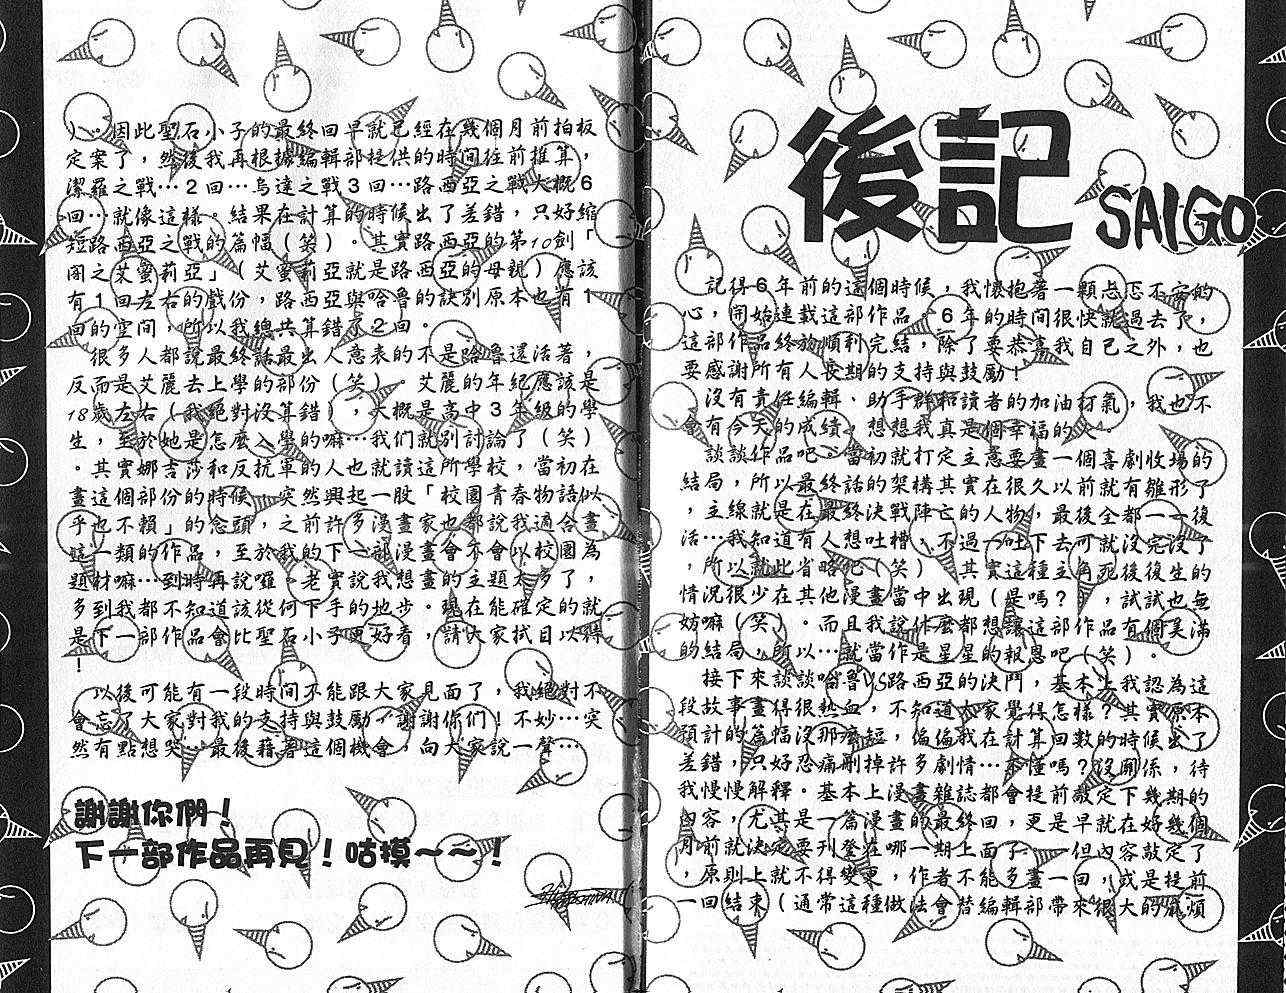 後記
SAIGO
記得6年前的這個時候，我懷抱著一顆忐忑不安的
心，開始連載這部作品。6年的時間很快就過去了，
這部作品終於順利完結，除了要恭喜我自己之外，也
要感謝所有人長期的支持與鼓勵！
沒有責任編輯、助手群和讀者的加油打氣，我也不
會有今天的成績，想想我真是個幸福的人。
談談作品吧。當初就打定主意要畫一個喜劇收場的
結局，所以最終話的架構其實在很久以前就有雛形了
，主線就是在最終決戰陣亡的人物，最後全都一一復
活…我知道有人想吐槽，不過一吐下去可就沒完沒了
，所以就此省略吧（笑）。其實這種主角死後復生的
情況很少在其他漫畫當中出現（是嗎？），試試也無
妨嘛（笑）。而且我說什麼都想讓這部作品有個美滿
的結局，所以…就當作是星星的報恩吧（笑）。
接下來談談哈魯VS路西亞的決鬥，基本上我認為這
段故事畫得很熱血，不知道大家覺得怎樣？其實原本
預計的篇幅沒那麼短，偏偏我在計算回數的時候出了
差錯，只好忍痛刪掉許多劇情…不懂嗎？沒關係，待
我慢慢解釋。基本上漫畫雜誌都會提前敲定下幾期的
內容，尤其是一篇漫畫的最終回，更是早就在好幾個
月前就決定要刊登在哪一期上面了。一但內容敲定了
，原則上就不得變更，作者不能多畫一回，或是提前
一回結束（通常這種做法會替編輯部帶來很大的麻煩
）…因此聖石小子的最終回早就已經在幾個月前拍板
定案了，然後我再根據編輯部提供的時間往前推算，
潔羅之戰…2回…烏達之戰3回…路西亞之戰大概6
回…就像這樣。結果在計算的時候出了差錯，只好縮
短路西亞之戰的篇幅（笑）。其實路西亞的第10劍「
闇之艾蜜莉亞」（艾蜜莉亞就是路西亞的母親）應該
有1回左右的戲份，路西亞與哈魯的訣別原本也有1
回的空間，所以我總共算錯了2回。
很多人都說最終話最出人意表的不是哈魯還活著，
反而是艾麗去上學的部份（笑）。艾麗的年紀應該是
18歲左右（我絕對沒算錯），大概是高中3年級的學
生，至於她是怎麼入學的嘛…我們就別討論了（笑）
。其實娜吉莎和反抗軍的人也就讀這所學校，當初在
畫這個部份的時候，突然興起一股「校園青春物語似
乎也不賴」的念頭，之前許多漫畫家也都說我適合畫
這一類的作品，至於我的下一部漫畫會不會以校園為
題材嘛…到時再說囉。老實說我想畫的主題太多了，
多到我都不知道該從何下手的地步。現在能確定的就
是下一部作品會比聖石小子更好看，請大家拭目以待
！
以後可能有一段時間不能跟大家見面了，我絕對不
會忘了大家對我的支持與鼓勵，謝謝你們！不妙…突
然有點想哭，最後藉著這個機會，向大家說一聲…
謝謝你們！
下一部作品再見！咕摸～～！